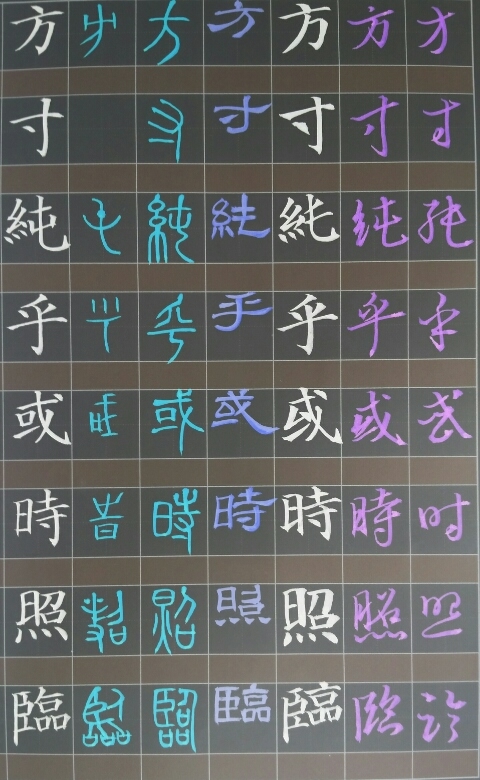 方 方 方 方 方 方 方
寸 寸 寸 寸 寸 寸
純 屯 純 純 純 純 純
乎 乎 乎 乎 乎 乎 乎
或 或 或 或 或 或 或
時 時 時 時 時 時 时
照 照 照 照 照 照 照
臨 臨 臨 臨 臨 臨 臨